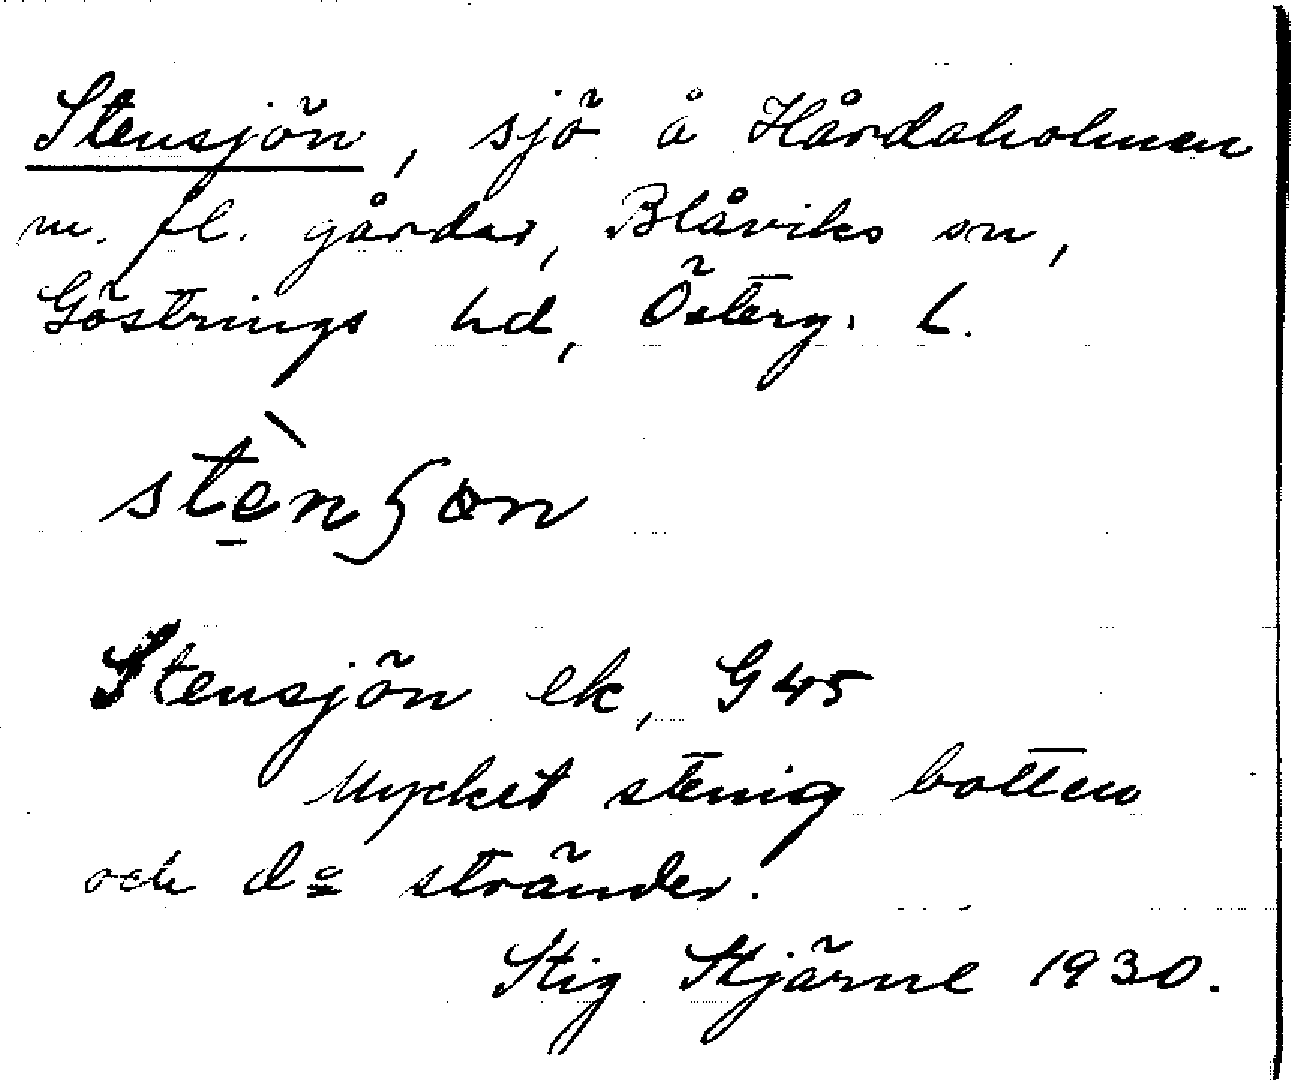 Stensjön, sjö å Hårdaholmen
m. fl. gårdar, Blåviks sn,
Göstrings hd, Österg. L.
stèn̠ʃɷn
Stensjön ek, G 45
Mycket stenig botten
och do stränder.
Stig Stjärne 1930.